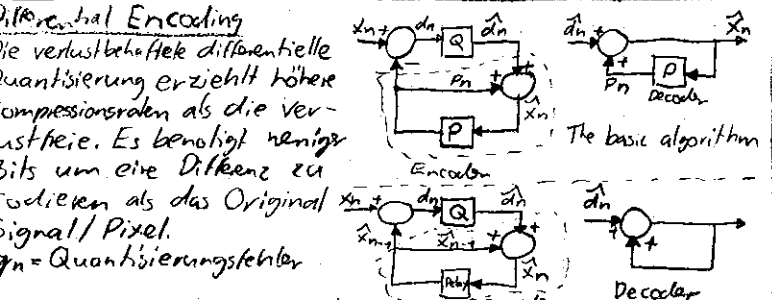 Differential Encoding
Die verlustbehaftete differentielle
Quantisierung erziehlt höhere
Kompressionsraten als die ver-
lustfreie. Es benötigt weniger
Bits um eine Differenz zu
codieren als das Original
Signal/Pixel.
qn = Quantisierungsfehler
xn + dn Q d̂n
+ pn +
P x̂n
Encoder
d̂n + x̂n
+ pn P
Decoder
The basic algorithm
xn + dn Q d̂n
x̂n-1 x̂n-1 + +
Delay x̂n
d̂n + +
Decoder